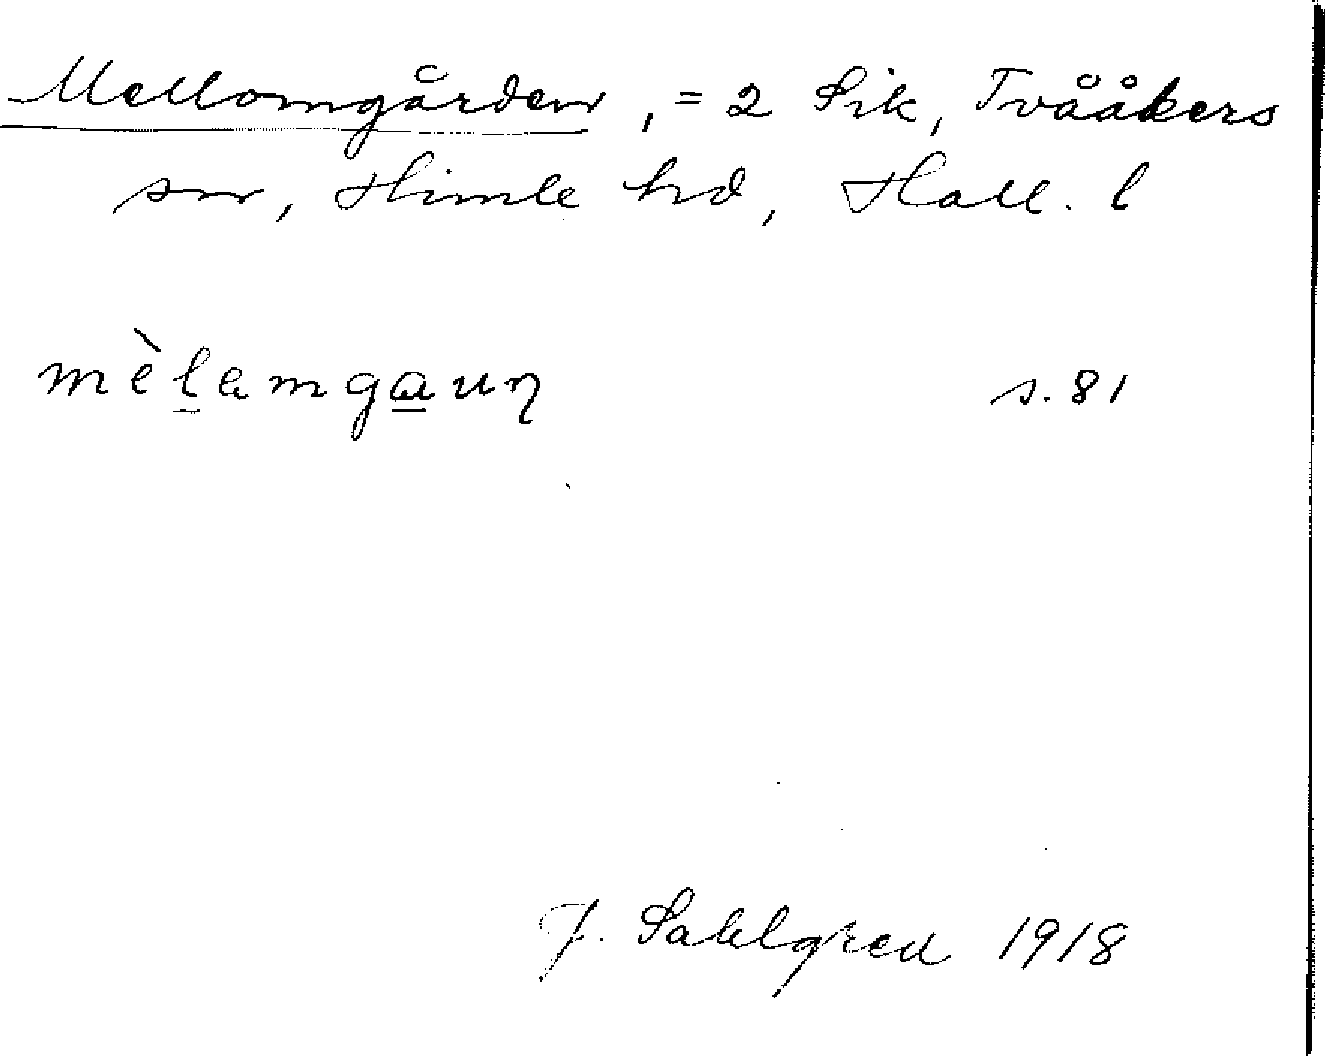 Mellomgården, = 2 Sik, Tvååkers
sn, Himle hd, Hall. l
mèl̲amga̲uη s. 81
J. Sahlgren 1918